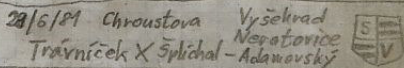 28/6/81 Chroustova Vyšehrad
Neratovice
Trávníček X Šplíchal - Adamovský
S
V